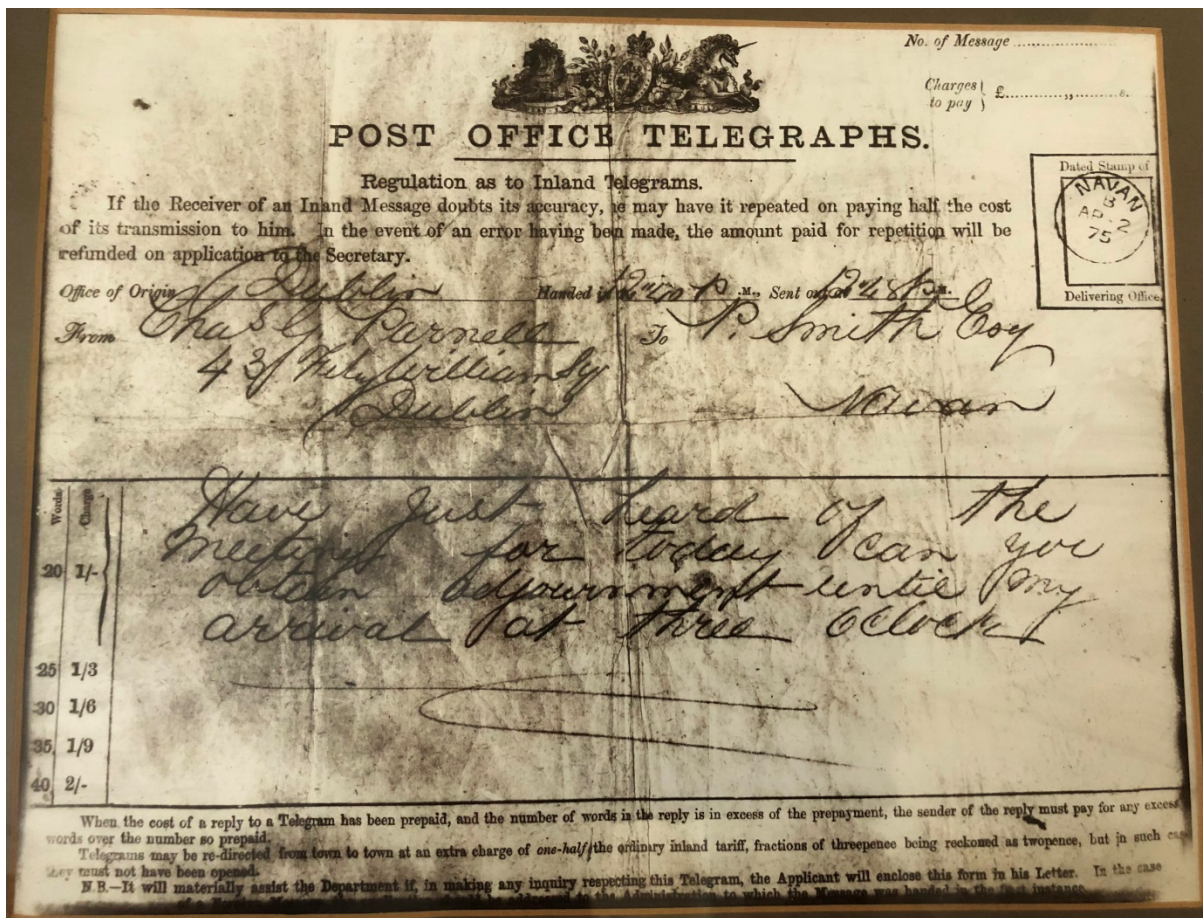 No. of Message ....................
Charges to pay } £............,,..........s.
POST OFFICE TELEGRAPHS.
Regulation as to Inland Telegrams.
If the Receiver of an Inland Message doubts its accuracy, he may have it repeated on paying half the cost
of its transmission to him. In the event of an error having been made, the amount paid for repetition will be
refunded on application to the Secretary.
Dated Stamp of
NAVAN
B
AP 2
75
Delivering Office.
Office of Origin Dublin Handed in at 12.40 P.M., Sent out at 12.48 P.M.
From Chas S Parnell To P. Smith Esq
43 Fitzwilliam Sq
Dublin Navan
Words. Charge
Have just heard of the
meeting for today can you
20 1/- obtain adjournment until my
arrival at three OClock
25 1/3
30 1/6
35 1/9
40 2/-
When the cost of a reply to a Telegram has been prepaid, and the number of words in the reply is in excess of the prepayment, the sender of the reply must pay for any excess
words over the number so prepaid.
Telegrams may be re-directed from town to town at an extra charge of one-half the ordinary inland tariff, fractions of threepence being reckoned as twopence, but in such case
they must not have been opened.
N.B.—It will materially assist the Department if, in making any inquiry respecting this Telegram, the Applicant will enclose this form in his Letter. In the case
to the Administration to which the Message was handed in the first instance.